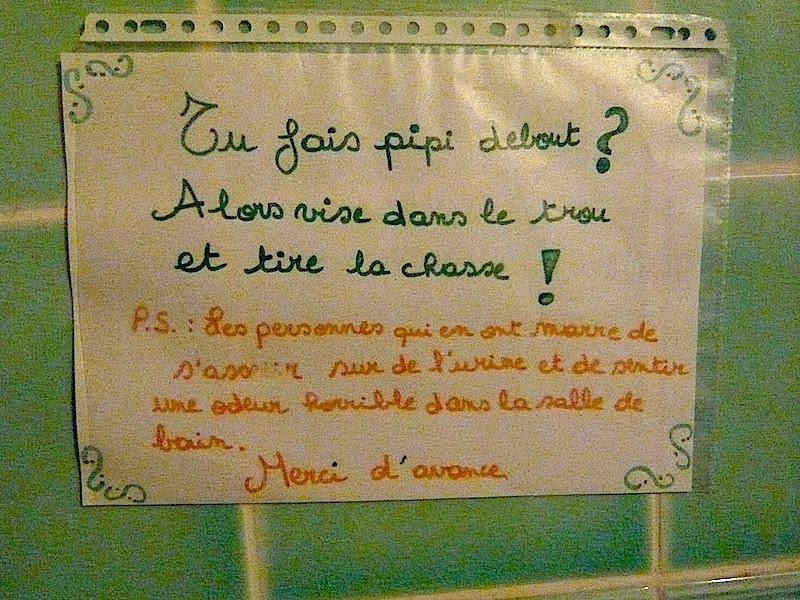 Tu fais pipi debout ?
Alors vise dans le trou
et tire la chasse !
P.S. : Les personnes qui en ont marre de
s'asseoir sur de l'urine et de sentir
une odeur horrible dans la salle de
bain.
Merci d'avance